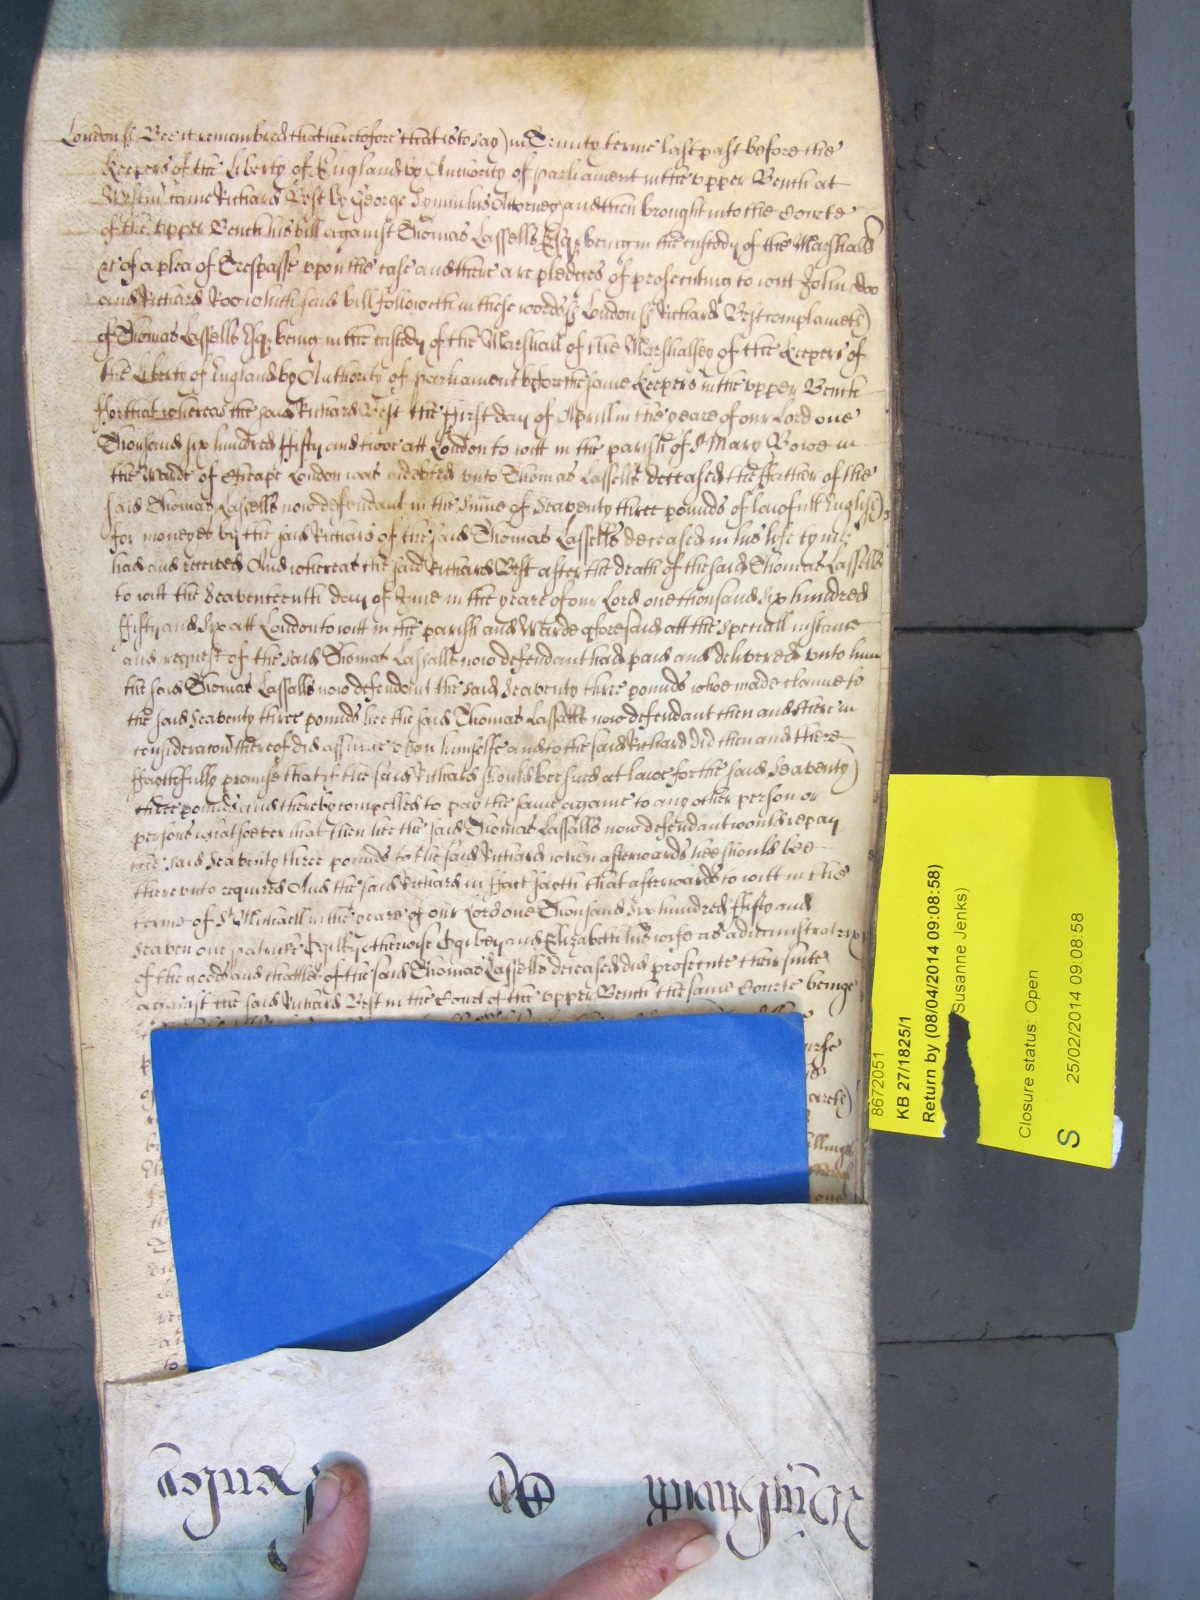 London ss Bee it remembred that heretofore that is to say) in Trinity terme last past before the
Keepers of the Liberty of England by Authority of parliament in the vpper Bench at
Westm came Richard Best by George Attorney and then brought into the Courte
of the vpper Bench his bill against Thomas Lassells Esq being in the custody of the Marshall
&c of a plea of Trespasse vpon the case and there are pledges of prosecuting to witt John doo
and Richard Roo which said bill followeth in these words ss London ss Richard Best complaineth)
of Thomas Lassells Esq being in the custody of the Marshall of the Marshalsey of the Keepers of
the Liberty of England by Authority of parliament before the same Keepers in the vpper Bench
ffor that whereas the said Richard Best the ffirst day of Aprill in the yeare of our Lord one
Thousand six hundred ffifty and twoe att London to witt in the parish of St Mary Bowe in
the Warde of Cheape London was indebted vnto Thomas Lassells deceased the ffather of the
said Thomas Lassells now defendant in the summe of Seaventy three pounds of lawfull English)
for moneyes by the said Richard of the said Thomas Lassells deceased in his life tyme
had and received And whereas the said Richard Best after the death of the said Thomas Lassells
to witt the Seaventeenth day of June in the yeare of our Lord one thousand six hundred
ffifty and six att London to witt in the parish and Warde aforesaid att the speciall instance
and request of the said Thomas Lassalls now defendant had paid and delivered vnto him
the said Thomas Lassalls now defendant the said Seaventy three pounds whoe made clayme to
the said Seaventy three pounds hee the said Thomas Lassalls now defendant then and there in
consideracon thereof did assume vpon himselfe and to the said Richard did then and there
ffaythfully promise that if the said Richard should bee sued at lawe for the said Seaventy)
three pounds and thereby compelled to pay the same againe to any other person or
persons whatsoever that then hee the said Thomas Lassalls now defendant would repay
the said Seaventy three pounds to the said Richard when afterwards hee should bee
therevnto required And the said Richard in ffact sayth that afterwards to witt in the
terme of St Michaell in the yeare of our Lord one Thousand six hundred ffifty and
Seaven one otherwise and Elizabeth his wife as administratrix
of the goods and chattles of the said Thomas Lassells deceased did prosecute their suite
against the said Richard Best in the Court of the vpper Bench the same Courte beinge
to
one
8672051
KB 27/1825/1
Return by (08/04/2014 09:08:58)
Susanne Jenks)
Closure status: Open
S 25/02/2014 09:08:58